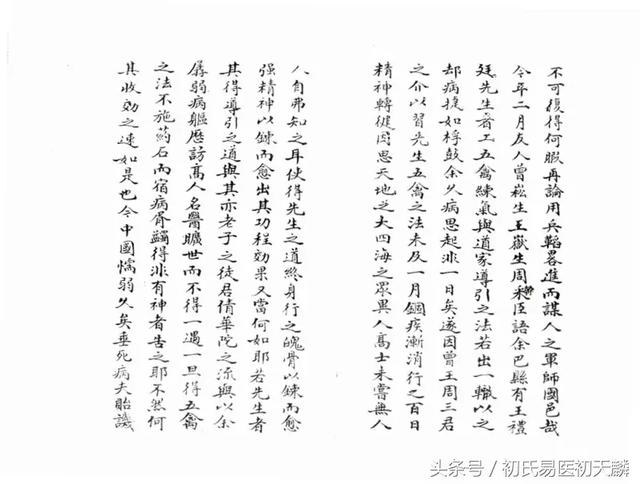 不可復得何暇再論用兵韜畧進而謀人之軍師國邑哉
今年二月友人曾崧生王嶽生周秉臣語余巴縣有王禮
廷先生者工五禽練氣與道家導引之法若出一轍以之
却病捷如桴鼓余久病思起非一日矣遂因曾王周三君
之介以習先生五禽之法未及一月錮疾漸消行之百日
精神轉健因思天地之大四海之眾異人高士未嘗無人
人自弗知之耳使得先生之道終身行之魄骨以鍊而愈
强精神以鍊而愈出其功程効果又當何如耶若先生者
其得導引之道與其亦老子之徒君倩華陀之流與以余
孱弱病軀歷訪髙人名醫曠世而不得一遇一旦得五禽
之法不施药石而宿病胥蠲得非有神者告之耶不然何
其收効之速如是也今中國懦弱久矣垂死病夫貽譏
头条号／初氏易医初天麟